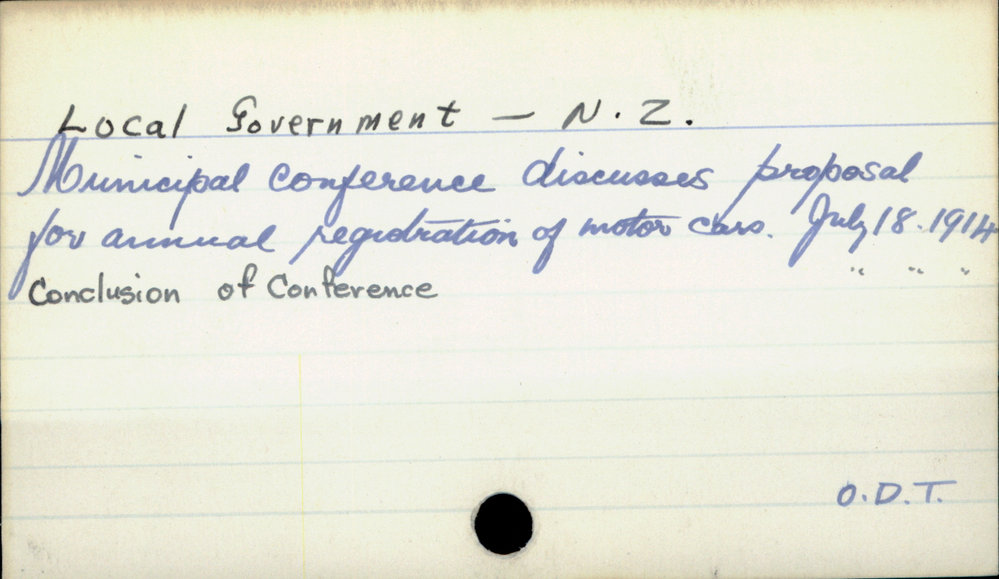 Local Government — N.Z.
Municipal Conference discusses proposal
for annual registration of motor cars. July 18. 1914
Conclusion of Conference " " "
O.D.T.